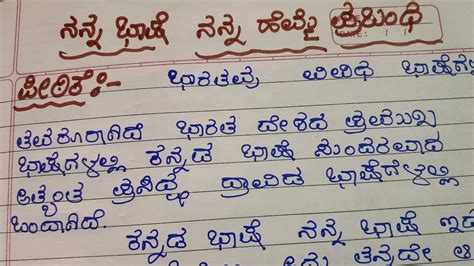 ನನ್ನ ಭಾಷೆ ನನ್ನ ಹೆಮ್ಮೆ ಪ್ರಬಂಧ
ಪೀಠಿಕೆ:- ಭಾರತವು ವಿವಿಧ ಭಾಷೆಗಳ
ತವರೂರಾಗಿದೆ ಭಾರತ ದೇಶದ ಪ್ರಮುಖ
ಭಾಷೆಗಳಲ್ಲಿ ಕನ್ನಡ ಭಾಷೆ ಸುಂದರವಾದ
ಅತ್ಯಂತ ಪ್ರಸಿದ್ಧ ದ್ರಾವಿಡ ಭಾಷೆಗಳಲ್ಲಿ
ಒಂದಾಗಿದೆ.
ಕನ್ನಡ ಭಾಷೆ ನನ್ನ ಭಾಷೆ ಇದು
ತನ್ನದೇ ಆ